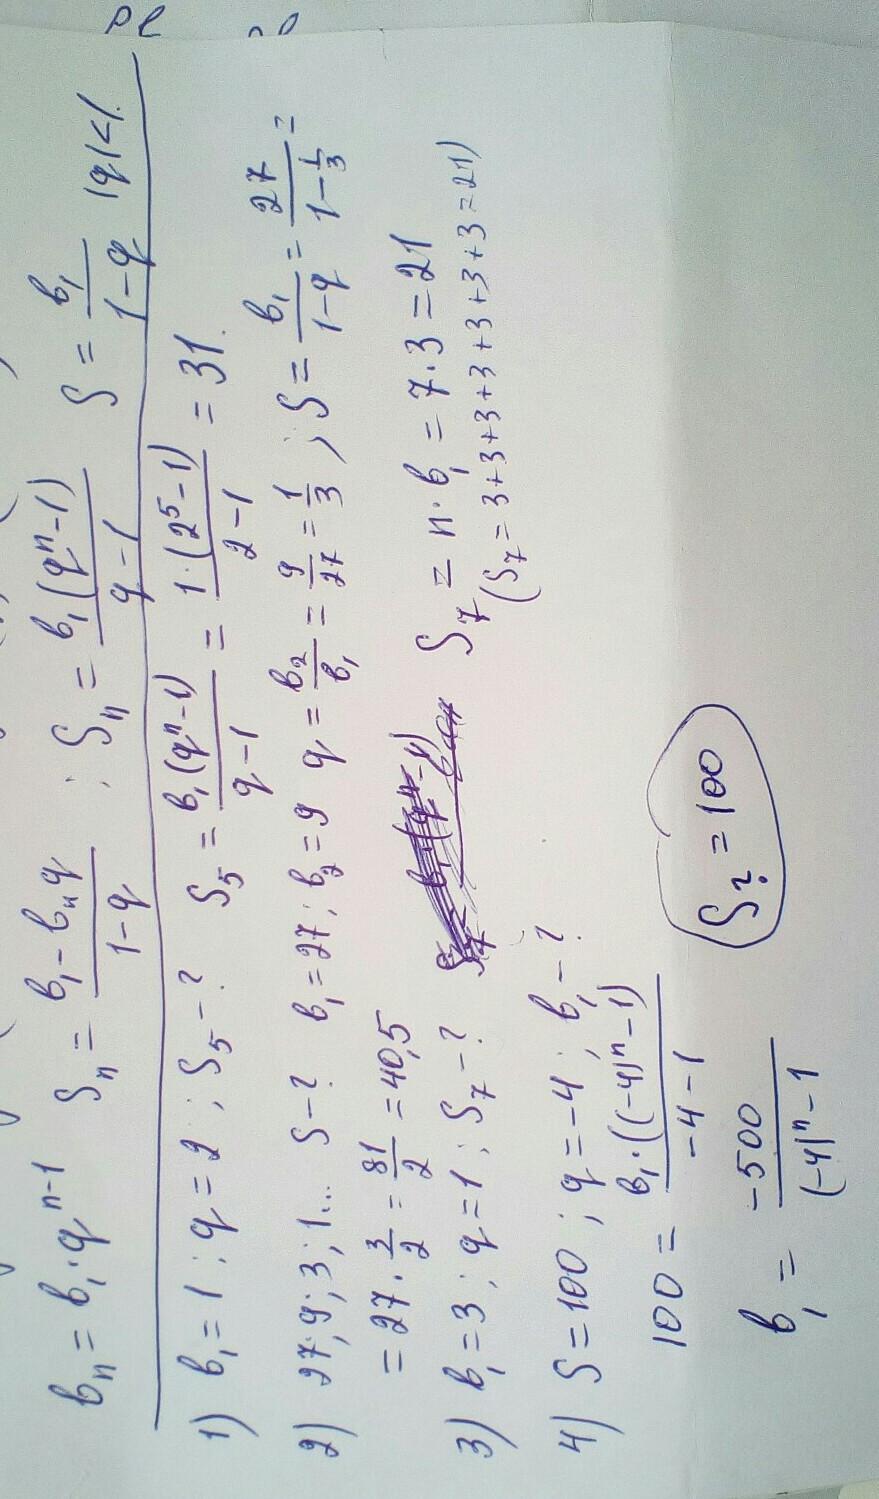 bₙ = b₁·qⁿ⁻¹ Sₙ = (b₁ - bₙq)/(1-q) ; Sₙ = b₁(qⁿ-1)/(q-1) S = b₁/(1-q) |q|<1.
1) b₁ = 1 ; q = 2 ; S₅ - ? S₅ = b₁(qⁿ-1)/(q-1) = 1·(2⁵-1)/(2-1) = 31.
2) 27; 9; 3; 1... S - ? b₁ = 27; b₂ = 9 q = b₂/b₁ = 9/27 = 1/3 ; S = b₁/(1-q) = 27/(1-1/3) =
= 27·3/2 = 81/2 = 40,5
3) b₁ = 3 ; q = 1 ; S₇ - ? S₇ = n·b₁ = 7·3 = 21
(S₇ = 3+3+3+3+3+3+3 = 21)
4) S = 100 ; q = -4 ; b₁ - ?
100 = b₁·((-4)ⁿ-1)/(-4-1)
S? = 100
b₁ = -500/((-4)ⁿ-1)